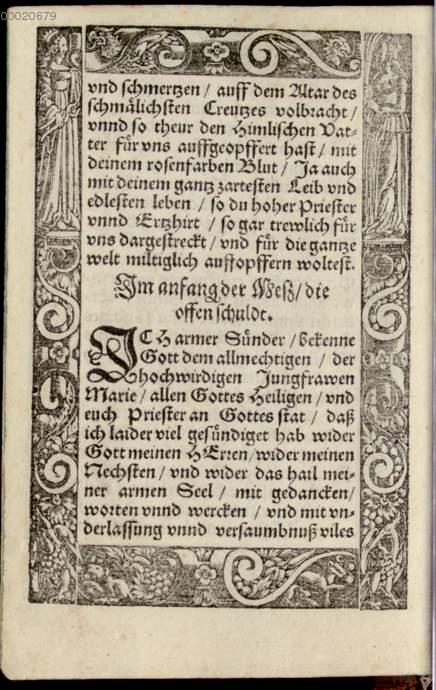 00020679
vnd schmertzen / auff dem Altar des
schmälichsten Creutzes volbracht /
vnnd so theur den Himlischen Vat-
ter für vns auffgeopffert hast / mit
deinem rosenfarben Blut / Ja auch
mit deinem gantz zartesten Leib vnd
edlesten leben / so du hoher Priester
vnnd Ertzhirt / so gar trewlich für
vns dargestreckt / vnd für die gantze
welt miltiglich auffopffern woltest.
Im anfang der Meß / die
offen schuldt.
ICH armer Sünder / bekenne
Gott dem allmechtigen / der
hochwirdigen Jungfrawen
Marie / allen Gottes Heiligen / vnd
euch Priester an Gottes stat / daß
ich laider viel gesündiget hab wider
Gott meinen HErren / wider meinen
Nechsten / vnd wider das hail mei-
ner armen Seel / mit gedancken /
worten vnnd wercken / vnd mit vn-
derlassung vnnd versaumbnuß viles